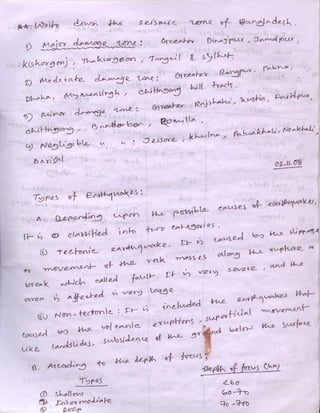 ** Write down the seismic zone of Bangladesh.
1) Major damage zone: Greater Dinajpur, Jamalpur,
Kishorganj, Thakurgaon, Tangail & sylhet.
2) Moderate damage zone: Greater Rangpur, Pabna,
Dhaka, Mymensingh, chittagong hill tract.
3) Minor damage zone: Greater Rajshahi, kustia, Faridpur,
chittagong, Bandarban, Comilla.
4) Negligible " " : Jessore, khulna, Patuakhali, Noakhali,
Barisal.
02.11.08
Types of Earthquakes:
A. Depending upon the possible causes of earthquakes,
It is classified into two categories.
① Tectonic earthquake. It is caused by the slippage
or movement of the rock masses along the rupture or
break which called fault. It is very severe, and the
area is affected is very large
② Non-tectonic: It is included the earthquakes that
caused by the volcanic eruptions, superficial movement
like landslides, subsidence of the ground below the surface
B. According to the depth of focus:
Types Depth of focus (km)
① Shallow <60
② Intermediate 60-70
③ Deep 70-700